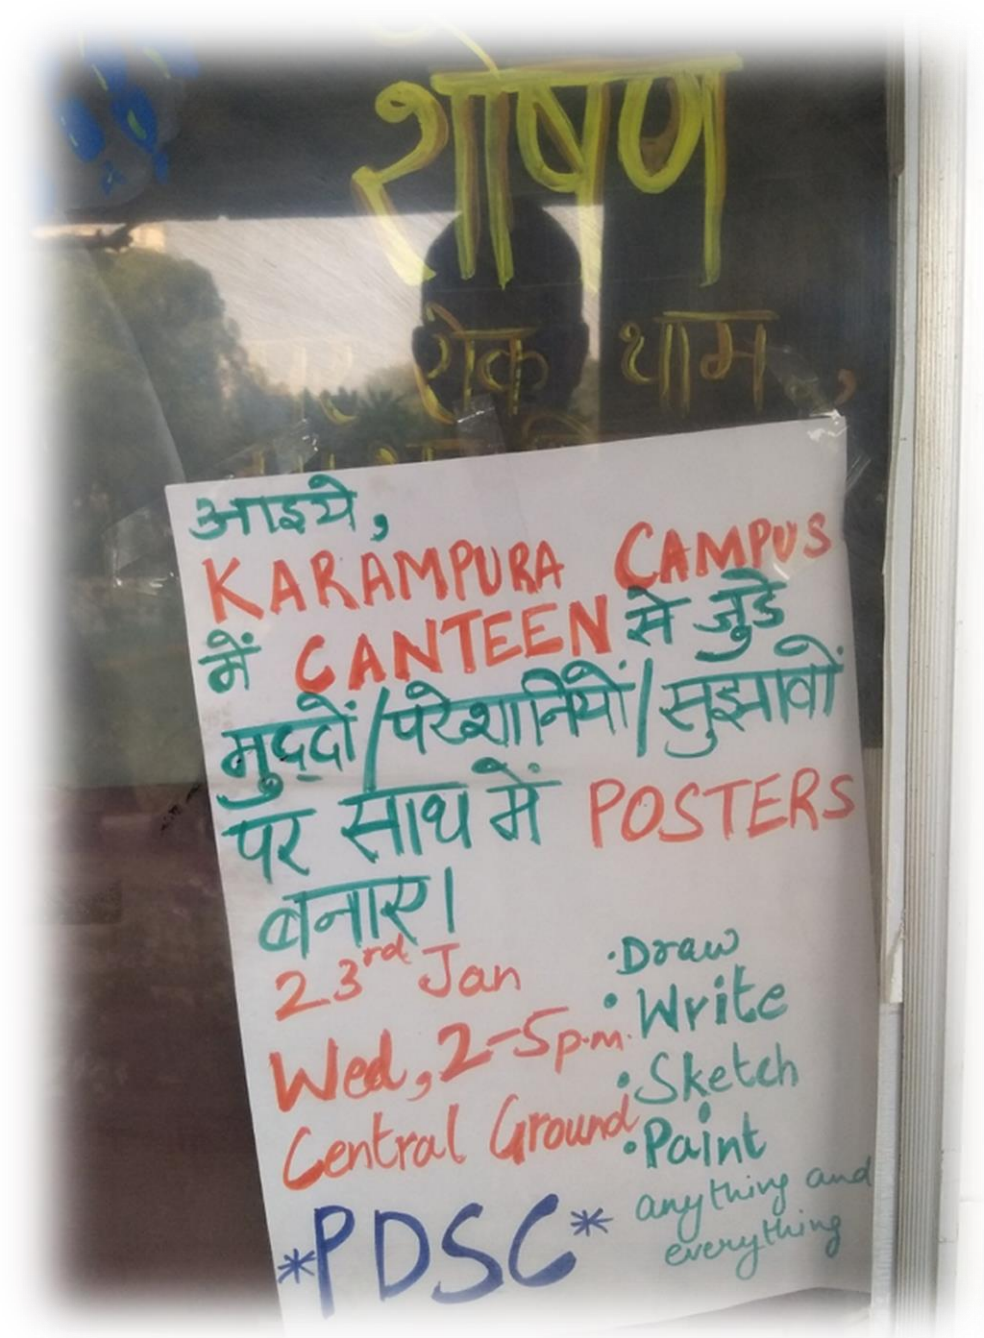 शोषण
रोक थाम ,
आइये,
KARAMPURA CAMPUS
में CANTEEN से जुडे
मुद्दों/परेशानियों/सुझावों
पर साथ में POSTERS
बनाए।
23rd Jan
Wed, 2-5p.m.
Central Ground
• Draw
• Write
• Sketch
• Paint
anything and
everything
*PDSC*